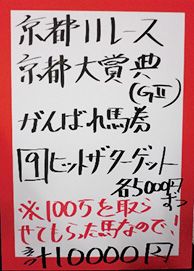 京都11レース
京都大賞典
(GII)
がんばれ馬券
9 ヒットザターゲット
各5000円
ずつ
※100万を取ら
せてもらった馬なので、!
計10000円